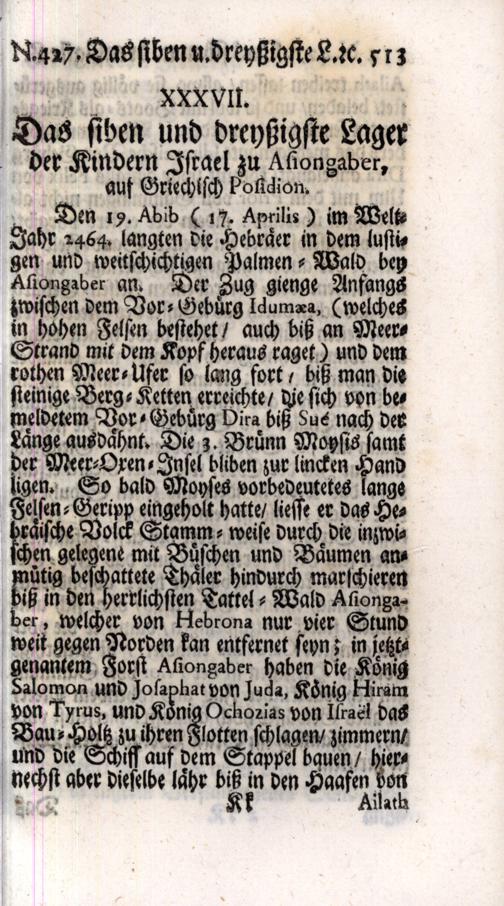 N.427. Das siben u. dreyßigste L.ꝛc. 513
XXXVII.
Das siben und dreyßigste Lager
der Kindern Israel zu Asiongaber,
auf Griechisch Posidion.
Den 19. Abib (17. Aprilis) im Welt-
Jahr 2464. langten die Hebräer in dem lusti-
gen und weitschichtigen Palmen-Wald bey
Asiongaber an. Der Zug gienge Anfangs
zwischen dem Vor-Gebürg Idumæa, (welches
in hohen Felsen bestehet/ auch biß an Meer-
Strand mit dem Kopf heraus raget) und dem
rothen Meer-Ufer so lang fort/ biß man die
steinige Berg-Ketten erreichte/ die sich von be-
meldetem Vor-Gebürg Dira biß Sué nach der
Länge ausdähnt. Die 3. Brünn Moysis samt
der Meer-Oxen-Insel bliben zur lincken Hand
ligen. So bald Moyses vorbedeutetes lange
Felsen-Geripp eingeholt hatte/ liesse er das He-
bräische Volck Stamm-weise durch die inzwi-
schen gelegene mit Büschen und Bäumen an-
mütig beschattete Thäler hindurch marschieren
biß in den herrlichsten Tattel-Wald Asionga-
ber, welcher von Hebrona nur vier Stund
weit gegen Norden kan entfernet seyn; in jetzt-
genantem Forst Asiongaber haben die König
Salomon und Josaphat von Juda, König Hiram
von Tyrus, und König Ochozias von Israël das
Bau-Holtz zu ihren Flotten schlagen/ zimmern/
und die Schiff auf dem Stappel bauen/ hier-
nechst aber dieselbe lähr biß in den Haafen von
Kk Ailath